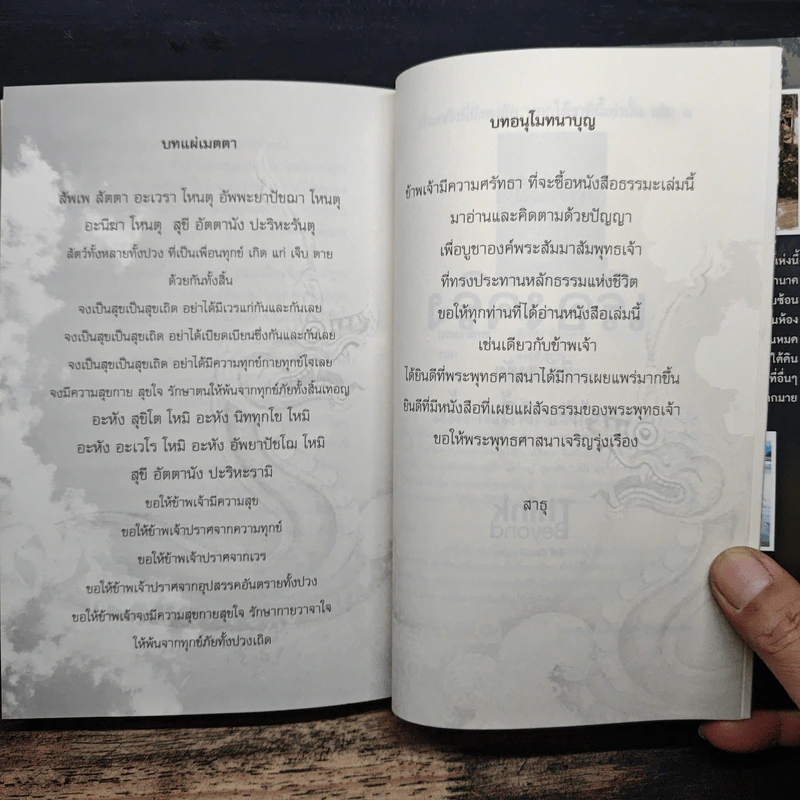 บทแผ่เมตตา
สัพเพ สัตตา อะเวรา โหนตุ อัพพะยาปัชฌา โหนตุ
อะนีฆา โหนตุ สุขี อัตตานัง ปะริหะรันตุ
สัตว์ทั้งหลายทั้งปวง ที่เป็นเพื่อนทุกข์ เกิด แก่ เจ็บ ตาย
ด้วยกันทั้งสิ้น
จงเป็นสุขเป็นสุขเถิด อย่าได้มีเวรแก่กันและกันเลย
จงเป็นสุขเป็นสุขเถิด อย่าได้เบียดเบียนซึ่งกันและกันเลย
จงเป็นสุขเป็นสุขเถิด อย่าได้มีความทุกข์กายทุกข์ใจเลย
จงมีความสุขกาย สุขใจ รักษาตนให้พ้นจากทุกข์ภัยทั้งสิ้นเทอญ
อะหัง สุขิโต โหมิ อะหัง นิททุกโข โหมิ
อะหัง อะเวโร โหมิ อะหัง อัพยาปัชโฌ โหมิ
สุขี อัตตานัง ปะริหะรามิ
ขอให้ข้าพเจ้ามีความสุข
ขอให้ข้าพเจ้าปราศจากความทุกข์
ขอให้ข้าพเจ้าปราศจากเวร
ขอให้ข้าพเจ้าปราศจากอุปสรรคอันตรายทั้งปวง
ขอให้ข้าพเจ้าจงมีความสุขกายสุขใจ รักษากายวาจาใจ
ให้พ้นจากทุกข์ภัยทั้งปวงเถิด
บทอนุโมทนาบุญ
ข้าพเจ้ามีความศรัทธา ที่จะซื้อหนังสือธรรมะเล่มนี้
มาอ่านและคิดตามด้วยปัญญา
เพื่อบูชาองค์พระสัมมาสัมพุทธเจ้า
ที่ทรงประทานหลักธรรมแห่งชีวิต
ขอให้ทุกท่านที่ได้อ่านหนังสือเล่มนี้
เช่นเดียวกับข้าพเจ้า
ได้ยินดีที่พระพุทธศาสนาได้มีการเผยแพร่มากขึ้น
ยินดีที่มีหนังสือที่เผยแผ่สัจธรรมของพระพุทธเจ้า
ขอให้พระพุทธศาสนาเจริญรุ่งเรือง
สาธุ
Think
Beyond